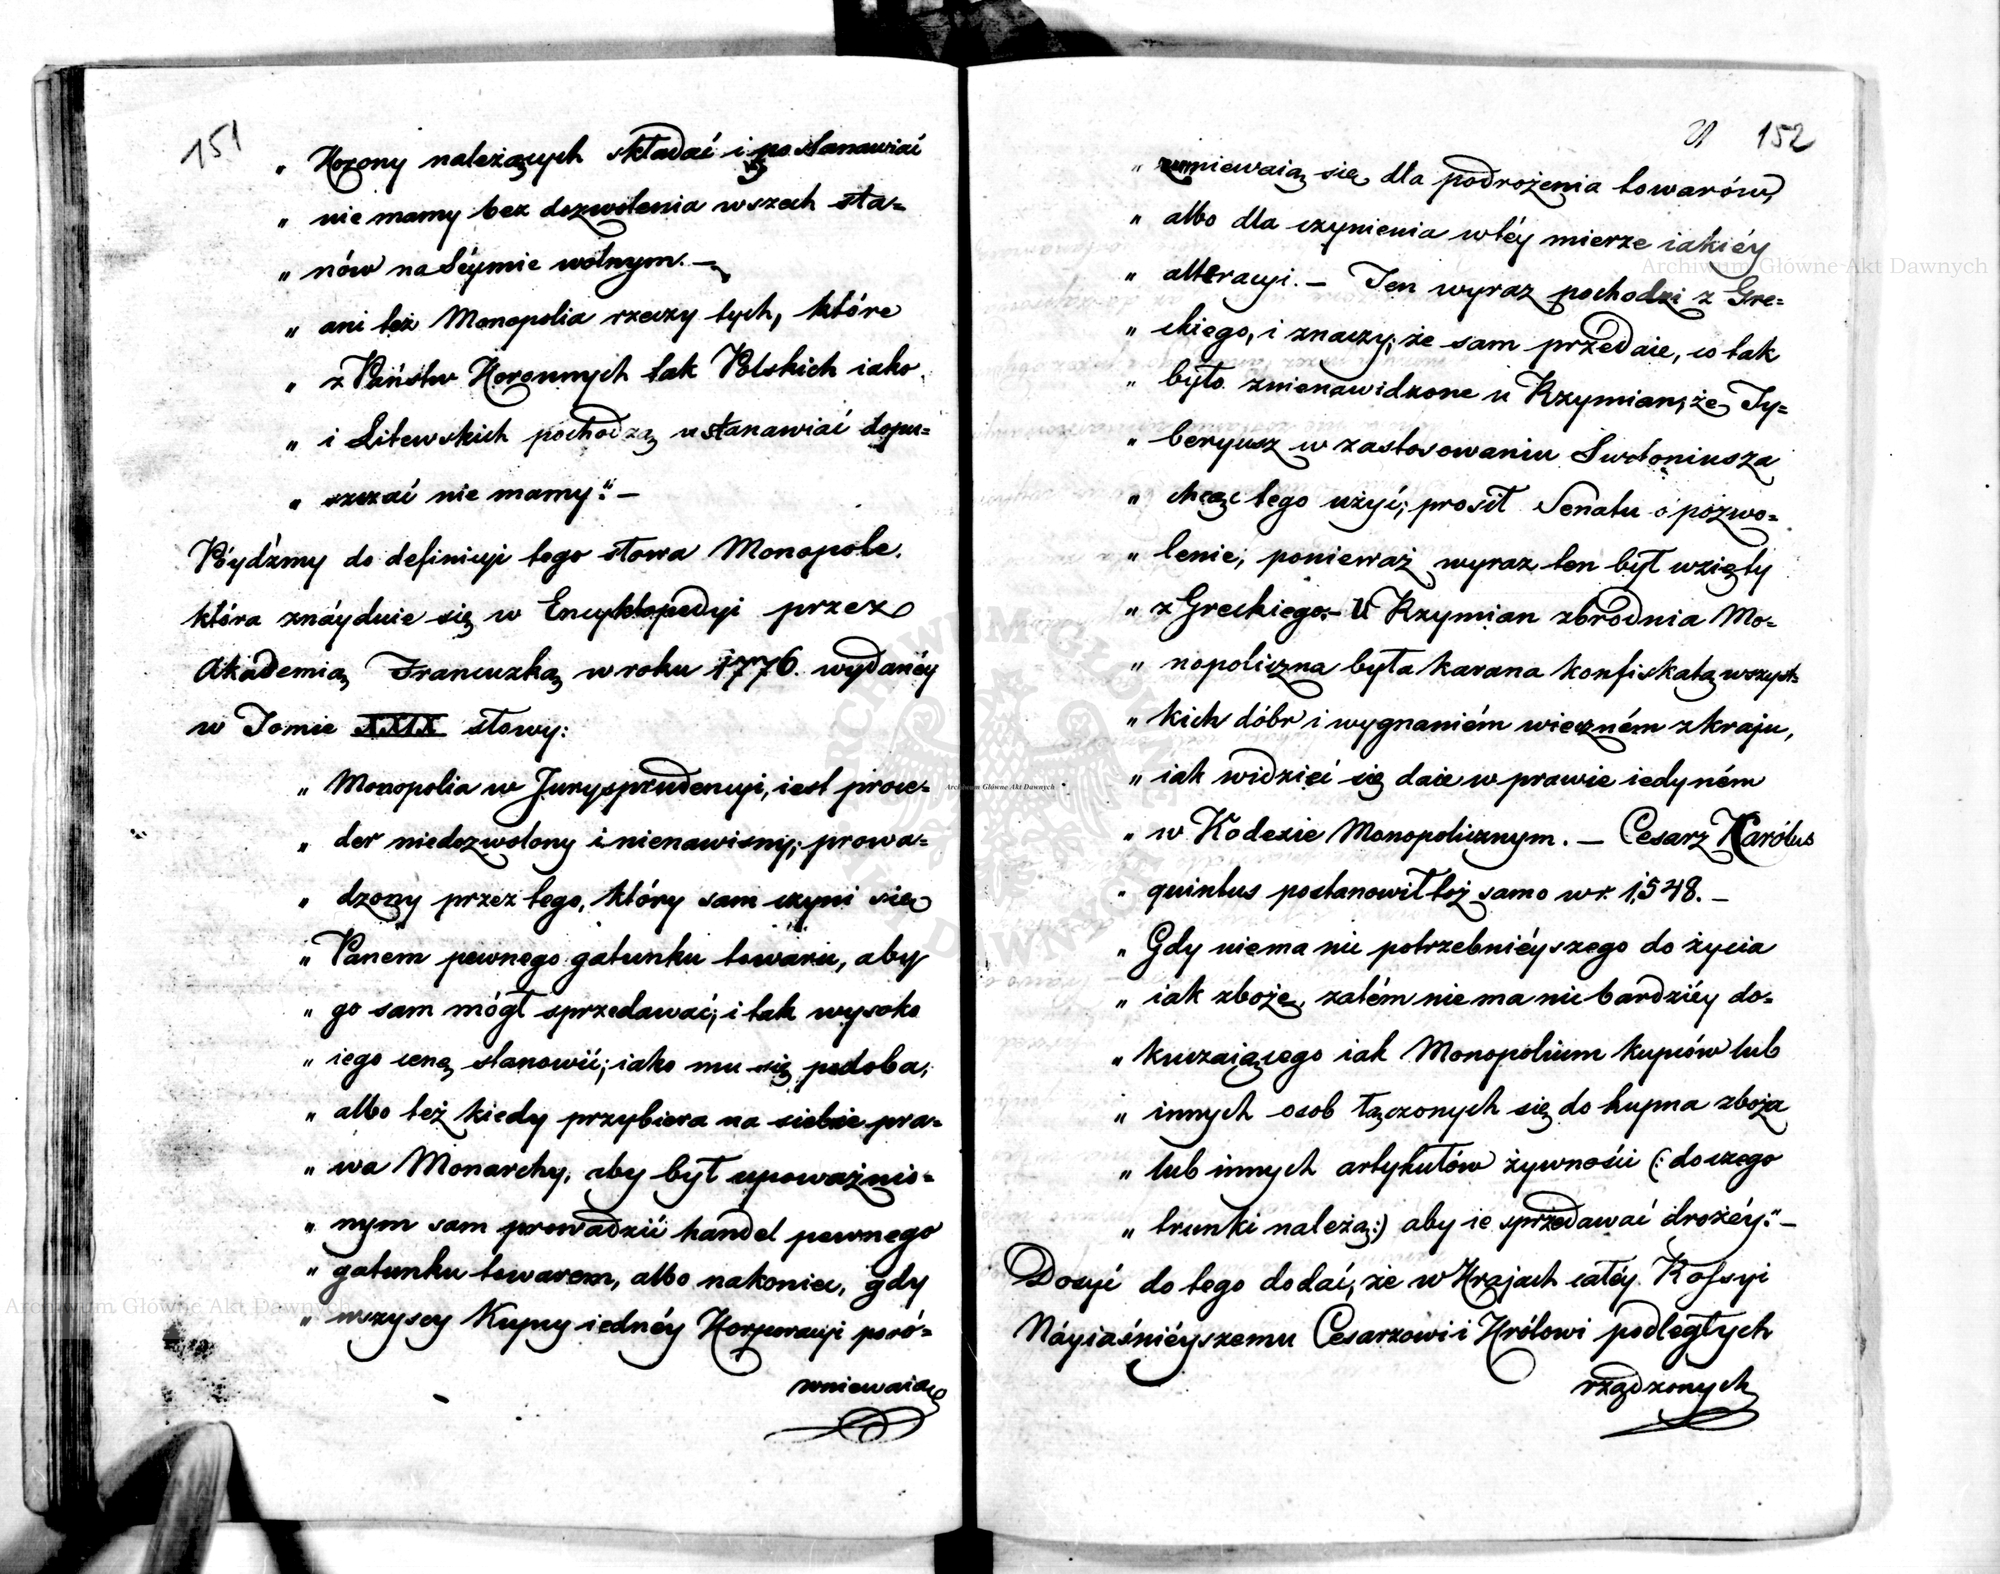 151
„ Korony należących składać i postanawiać
„ nie mamy bez dozwolenia wszech sta=
„ nów na Séymie wolnym. —
„ ani też Monopolia rzeczy tych, które
„ z Państw Koronnych tak Polskich iako
„ i Litewskich pochodzą ustanawiać dopu=
„ szczać nie mamy." —
Póydźmy do definicyi tego słowa Monopole.
która znáyduie się w Encyklopedyi przez
Akademią Francuzką w roku 1776. wydanéy
w Tomie XXIX słowy:
„ Monopolia w Jurysprudencyi, iest proce=
„ der niedozwolony i nienawisny; prowa=
„ dzony przez tego, który sam czyni się
„ Panem pewnego gatunku towaru, aby
„ go sam mógł sprzedawać; i tak wysoko
„ iego cenę stanowić; iako mu się podoba,
„ albo też kiedy przybiera na siebie pra=
„ wa Monarchy, aby był upoważnio=
„ nym sam prowadzić handel pewnego
„ gatunku towarem, albo nakoniec, gdy
„ wszyscy Kupcy iednéy Korporacyi poró=
wniewaią
152
„ zumiewaią się dla podrożenia towarów,
„ albo dla czynienia w téy mierze iakiéy
„ alteracyi. — Ten wyraz pochodzi z Gre=
„ ckiego, i znaczy; że sam przedaie, co tak
„ było znienawidzone u Rzymian; że Ty=
„ beryusz w zastosowaniu Swetoniusza
„ chcąc tego użyć; prosił Senatu o pozwo=
„ lenie; ponieważ wyraz ten był wzięty
„ z Greckiego. — U Rzymian zbrodnia Mo=
„ nopoliczna była karana konfiskatą wszyst=
„ kich dóbr i wygnaniém wieczném z kraju,
„ iak widzieć się daie w prawie iedyném
„ w Kodexie Monopolicznym. — Cesarz Karólus
„ quintus postanowił toż samo w r. 1548. —
„ Gdy niema nic potrzebniéyszego do życia
„ iak zboże, zatém nie ma nic bardziéy do=
„ kuczaiącego iak Monopolium kupców lub
„ innych osob łączonych się do kupna zboża
„ lub innych artykułów żywności (: do czego
„ trunki należą :) aby ie sprzedawać drożéy." —
Dosyć do tego dodać, że w Krajach całéy Rossyi
Náyiaśniéyszemu Cesarzowi i Królowi podległych
rządzonych
Archiwum Główne Akt Dawnych
Archiwum Główne Akt Dawnych
Archiwum Główne Akt Dawnych
ARCHIWUM GŁÓWNE AKT DAWNYCH